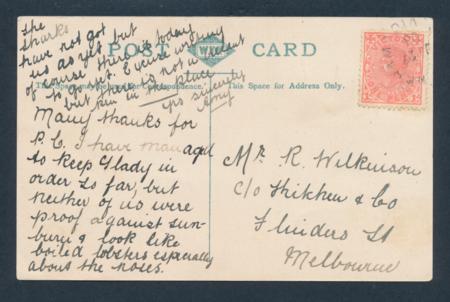 The
sharks
have not got
us as yet but
of course there is today
to forget. Excuse writing
but there is not a decent
pen in the place
yrs sincerely
Amy
POST CARD
This Space may be used for Correspondence.
This Space for Address Only.
Many thanks for
P.C. I have managed
to keep Glady in
order so far, but
neither of us were
proof against sun-
burn & look like
boiled lobsters especially
about the noses.
Mr. R. Wilkinson
C/o & Co
Flinders St
Melbourne